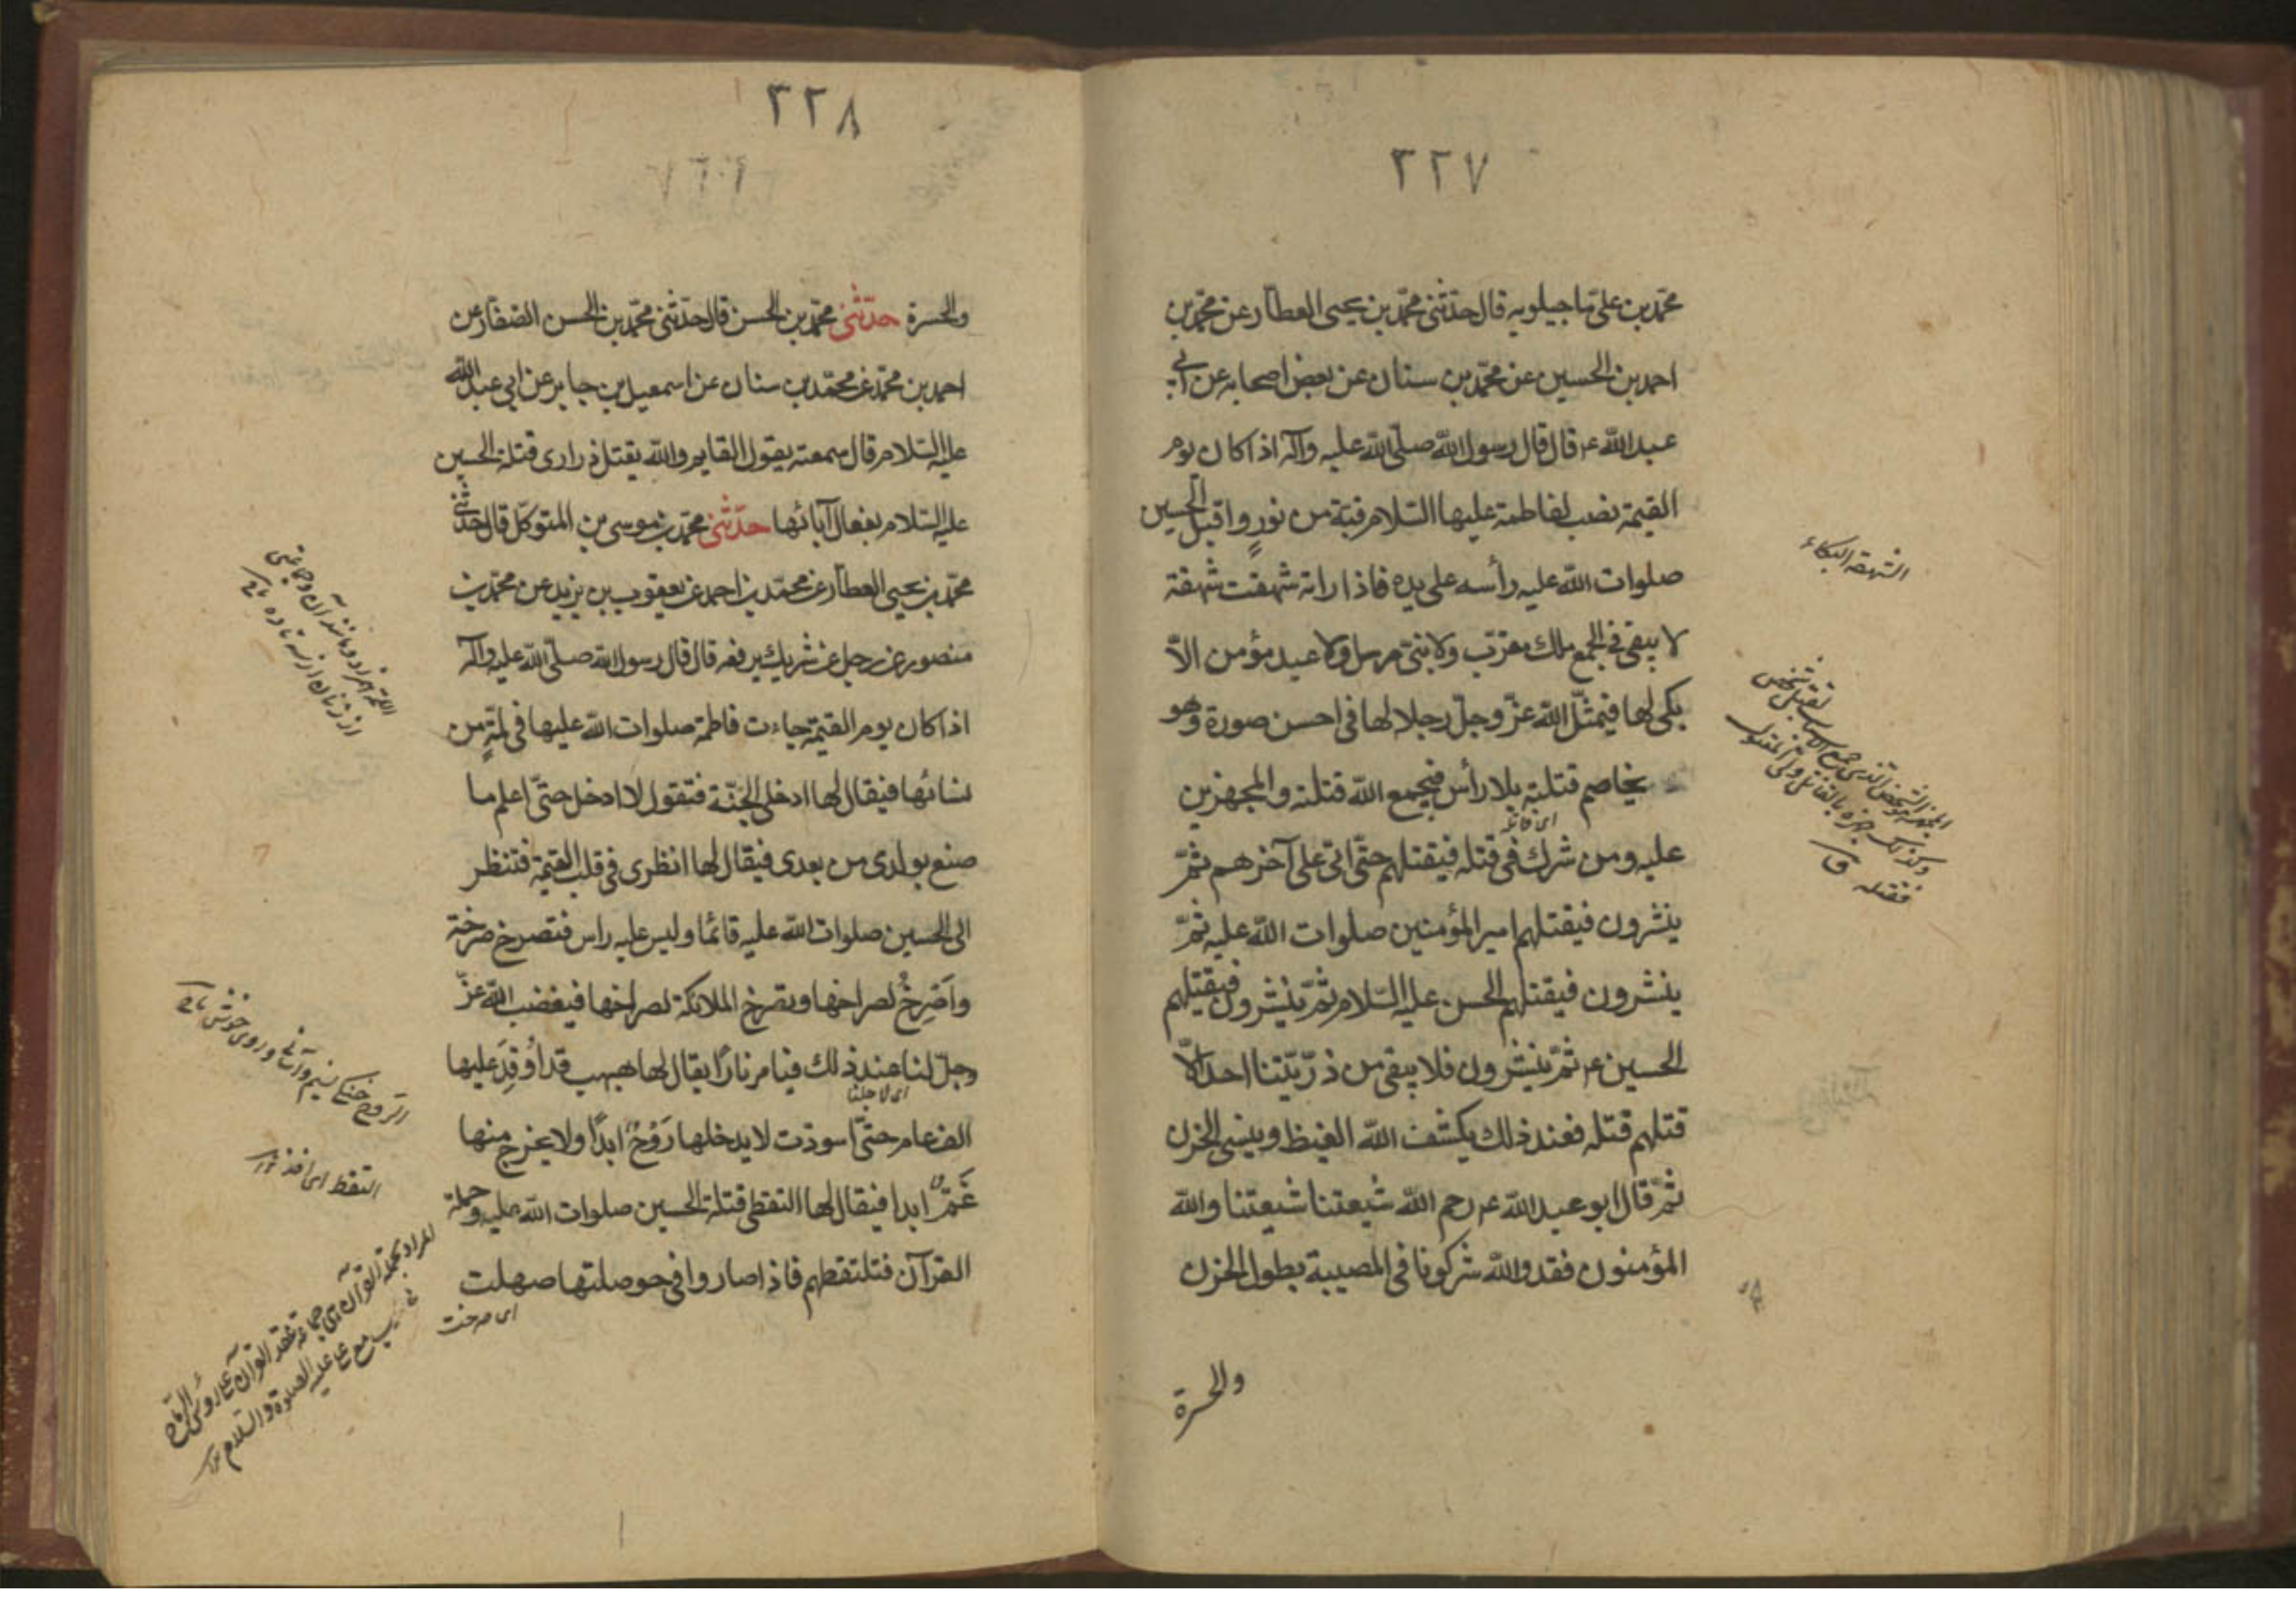 ٣٢٧
محمّد بن علىّ ماجيلويه قال حدّثنى محمّد بن يحيى العطّار عن محمّد بن
احمد بن الحسين عن محمّد بن سنان عن بعض اصحابه عن ابى
عبد الله ع قال قال رسول الله صلّى الله عليه وآله اذا كان يوم
القيمة نصب لفاطمة عليها السّلام قبّة من نورٍ واقبل الحسين
صلوات الله عليه رأسه على يده فاذا راته شهقت شهقة
لا يبقى فى الجمع ملك مقرّب ولا نبىّ مرسل ولا عبد مؤمن الاّ
بكى لها فيمثّل الله عزّ وجلّ رجلا لها فى احسن صورة وهو
يخاصم قتلته بلا رأس فيجمع الله قتلته والمجهزين
عليه ومن شرك فى قتله فيقتلهم حتّى اتى على آخرهم ثمّ
ينشرون فيقتلهم امير المؤمنين صلوات الله عليه ثمّ
ينشرون فيقتلهم الحسن عليه السّلام ثمّ ينشرون فيقتلهم
الحسين ع ثمّ ينشرون فلا يبقى من ذرّيّتنا احد الاّ
قتلهم قتله فعند ذلك يكشف الله الغيظ وينسى الحزن
ثمّ قال ابو عبد الله ع رحم الله شيعتنا شيعتنا والله
المؤمنون فقد والله شركونا فى المصيبة بطول الحزن
والحسرة
الشهقة البكاء
فقتله ق
٣٢٨
والحسرة حدّثنى محمّد بن الحسن قال حدّثنى محمّد بن الحسن الصّفّار عن
احمد بن محمّد عن محمّد بن سنان عن اسمعيل بن جابر عن ابى عبد الله
عليه السّلام قال سمعته يقول القايم والله يقتل ذرارى قتلة الحسين
عليه السّلام بفعال آبائها حدّثنى محمّد بن موسى بن المتوكّل قال حدّثنى
محمّد بن يحيى العطّار عن محمّد بن احمد عن يعقوب بن يزيد عن محمّد بن
منصور عن رجل عن شريك يرفعه قال قال رسول الله صلّى الله عليه وآله
اذا كان يوم القيمة جاءت فاطمة صلوات الله عليها فى لمّةٍ من
نسائها فيقال لها ادخلى الجنّة فتقول لا ادخل حتّى اعلم ما
صنع بولدى من بعدى فيقال لها انظرى فى قلب القيمة فتنظر
الى الحسين صلوات الله عليه قائما وليس عليه راس فتصرخ صرخة
واَصْرخُ لصراخها وتصرخ الملائكة لصراخها فيغضب الله عزّ
وجلّ لنا عند ذلك فيامر نارًا يقال لها هبهب قد اُوقِدَ عليها
اى لاجلنا
الف عام حتّى اسودّت لا يدخلها رَوْحٌ ابدًا ولا يخرج منها
غَمٌّ ابدا فيقال لها التقطى قتلة الحسين صلوات الله عليه وحملة
القرآن فتلتقطهم فاذا صاروا فى حوصلتها صهلت
اى صرخت